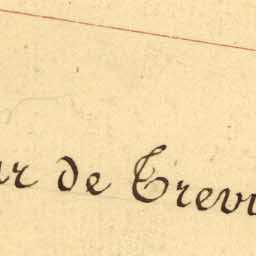 ur de Trevi